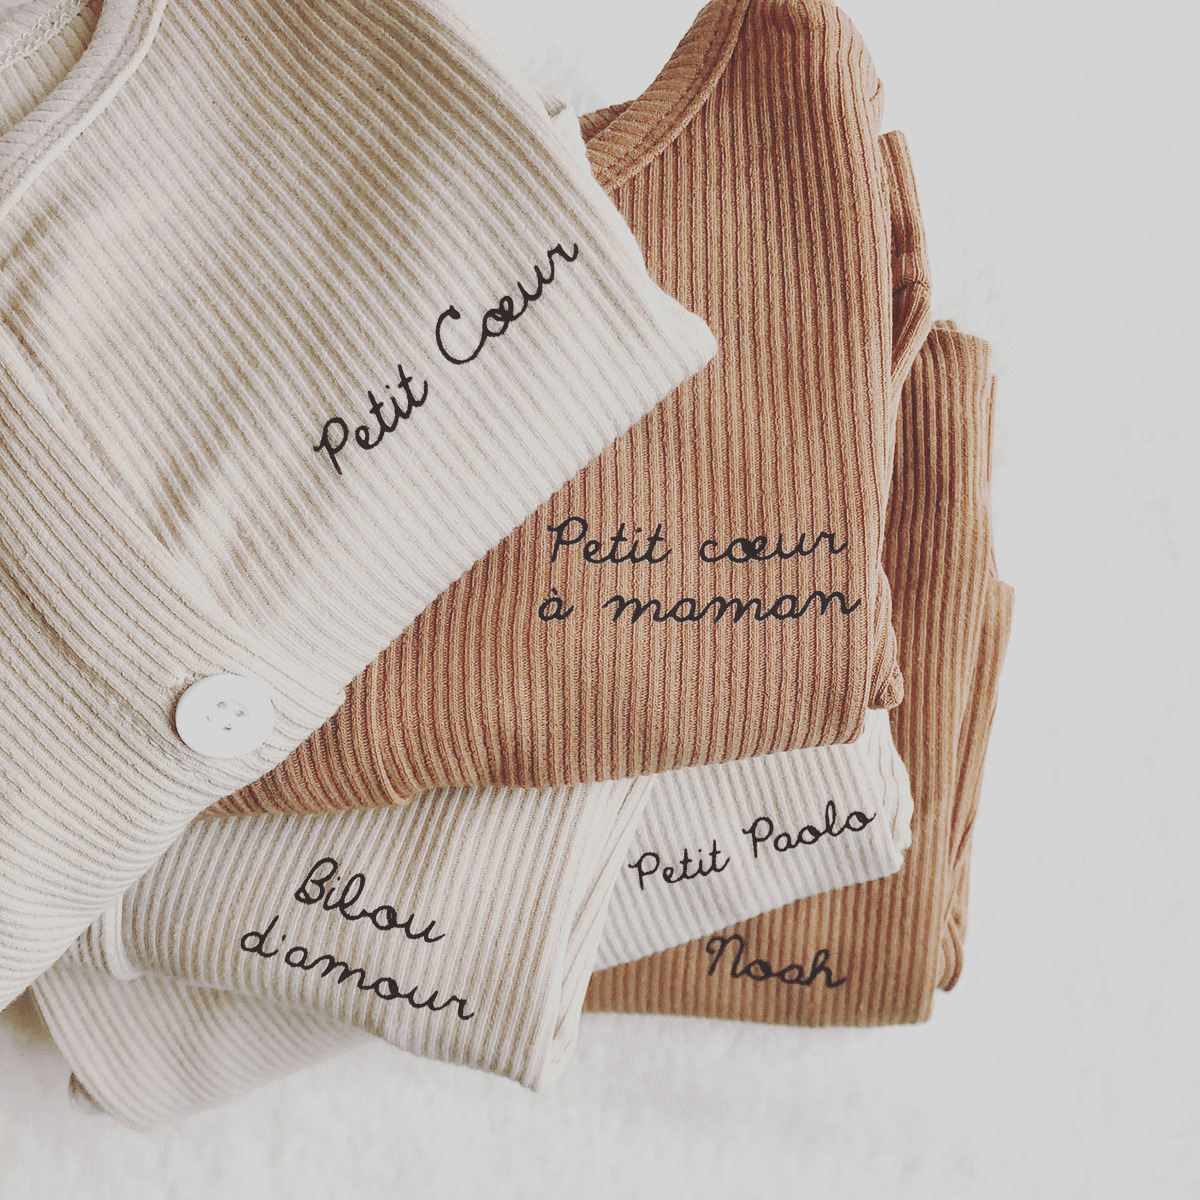 Petit Cœur
Petit cœur
à maman
Petit Paolo
Bibou
d'amour
Noah